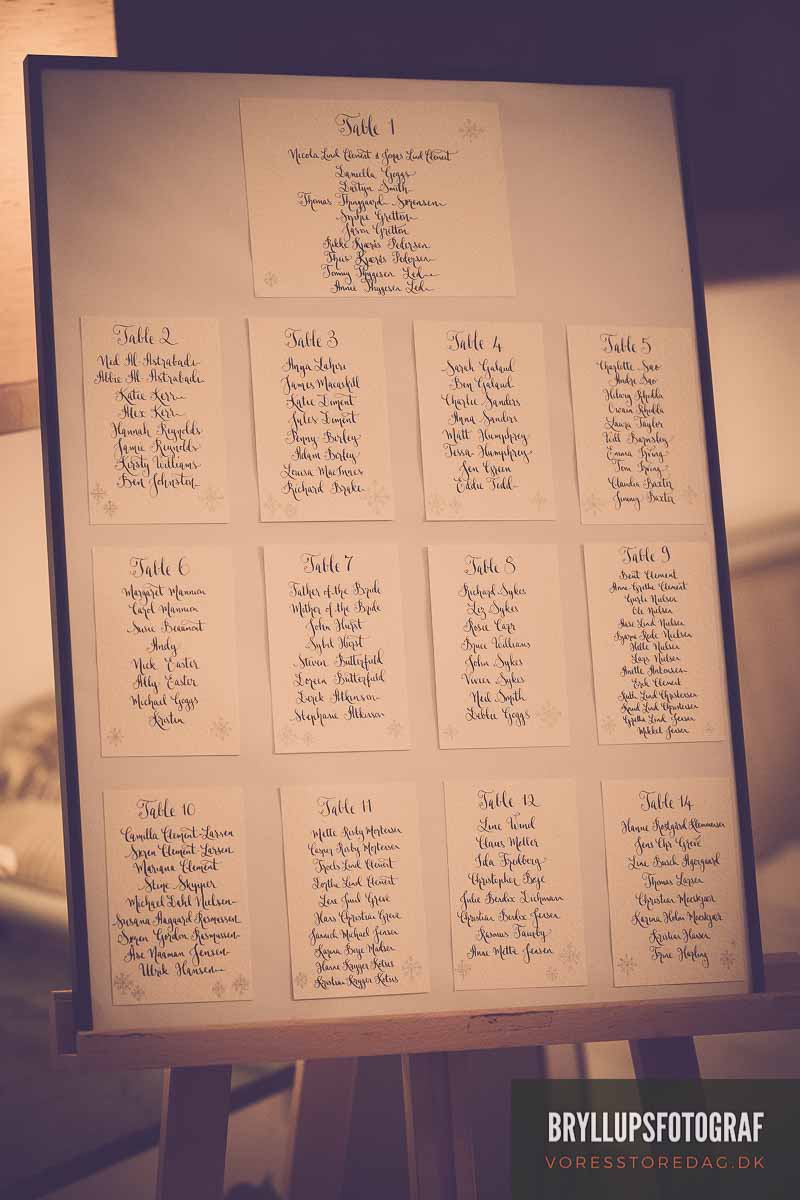 Table 1
Nicola Lind Clement & Jonas Lind Clement
Daniella Goggs
Smith
Thomas Thinggaard Sørensen
Sophie Gretton
Jason Gretton
Rikke Kjærès Pedersen
Theis Kjærès Pedersen
Tommy Thygesen Led
Annie Thygesen Led
Table 2
Ned Al-Astrabadi
Abbie Al-Astrabadi
Katie Kerr
Alex Kerr
Hannah Reynolds
Jamie Reynolds
Kirsty Williams
Ben Johnston
Table 3
Anya Lahiri
James Macaskill
Katie Diment
Jules Diment
Penny Borley
Adam Borley
Louisa MacInnes
Richard Brake
Table 4
Sarah Galaud
Ben Galaud
Charlie Sanders
Anna Sanders
Matt Humphrey
Tessa Humphrey
Jen Green
Eddie Todd
Table 5
Charlotte Sao
Andre Sao
Hilary Rhodda
Owain Rhodda
Laura Taylor
Will Barnsley
Emma Irving
Tom Irving
Claudia Baxter
Jimmy Baxter
Table 6
Margaret Mannion
Carol Mannion
Susie Beaumont
Andy
Nick Easter
Ally Easter
Michael Goggs
Kristin
Table 7
Father of the Bride
Mother of the Bride
John Hurst
Sybil Hurst
Steven Butterfield
Loreen Butterfield
Derek Atkinson
Stephanie Atkinson
Table 8
Richard Sykes
Liz Sykes
Rosie Carr
Bruce Williams
John Sykes
Vivien Sykes
Neil Smith
Debbie Goggs
Table 9
Bent Clement
Anne-Grethe Clement
Nielsen
Ole Nielsen
Lind Nielsen
Bjarne Rode Nielsen
Helle Nielsen
Lars Nielsen
Anette Antonsen
Erik Clement
Ruth Lind Christensen
Knud Lind Christensen
Gytha Lind Jensen
Mikkel Jensen
Table 10
Camilla Clement-Larsen
Søren Clement-Larsen
Mariana Clement
Stine Skypper
Michael Dahl Nielsen
Susana Aagaard Rasmussen
Søren Gordon Rasmussen
Åse Naaman Jensen
Ulrik Hansen
Table 11
Mette Risby Mortensen
Casper Risby Mortensen
Troels Lind Clement
Dorthe Lind Clement
Lene Juul Greve
Hans Christian Greve
Jannick Michael Jensen
Karina Boje Madsen
Hanne Krygger Kobus
Kristian Krygger Kobus
Table 12
Line Wind
Claus Møller
Ida Fredborg
Christopher Boje
Julie Berdix Lichmann
Christian Berdix Jensen
Rasmus Tamby
Anne Mette Jensen
Table 14
Hanne Rostgård Klemmensen
Jens Chr Greve
Line Busch Agergaard
Thomas Larsen
Christian Moeskjær
Karina Holm Moeskjær
Kristian Hansen
Trine Harling
BRYLLUPSFOTOGRAF
VORESSTOREDAG.DK